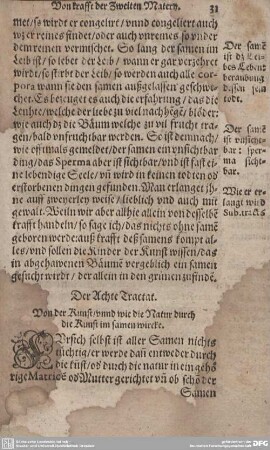 Von krafft der Zweiten Matery. 31
met/so wirdt er congelirt/vnnd congeliert auch
wz er reines findet/oder auch vnreines so vnder
dem reinen vermischet. So lang der samen im
Leib ist/so lebet der Leib/wann er gar verzehret
wirdt/so stirbt der Leib/so werden auch alle cor-
pora wann sie den samen außgelassen geschwe-
chet. Es bezeuget es auch die erfahrung/das die
Leuhte/welche der liebe zu viel nachhege/blöder:
wie auch die Bäum welche zu vil frucht tra-
gen/bald vnfruchtbar werden. So ist demnach/
wie offtmals gemeldet/der samen ein vnsichtbar
ding/das Sperma aber ist sichtbar/vnd ist fast ei-
ne lebendige Seele/vnd wird in keinen todten od
erstorbenen dingen gefunden. Man erlanget jh-
ne auff zweyerley weise/lieblich vnd auch mit
gewalt. Weiln wir aber allhie allein von desselbe
krafft handeln/so sage ich/das nichts ohne same
geboren werde: auß krafft deß samens kompt al-
les/vnd sollen die Kinder der Kunst wissen/das
in abgehawenen Bäume vergeblich ein samen
gesucht wirdt/der allein in den grünen zufinde.
Der same
ist dz Lei-
bes Lebens
beraubung
dessen sein
todt.
Der same
ist vnsicht-
bar: sper-
ma sicht-
bar.
Wie er er-
langt wird
Der Achte Tractat.
Von der Kunst/vnnd wie die Natur durch
die Kunst im samen wircke.
selbst ist aller Samen nichts
nichtig/er werde dan entweder durch
die kunst/od durch die natur in ein gehö-
rige Matrice od Mutter gerichtet vnd ob schö der
Samen